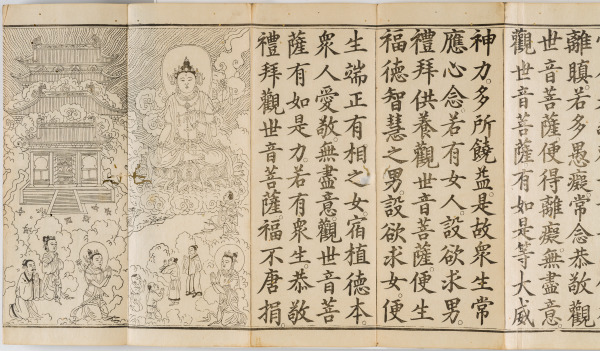 離瞋。若多愚癡常念恭敬觀
世音菩薩便得離癡。無盡意
觀世音菩薩有如是等大威
神力。多所饒益。是故眾生常
應心念。若有女人設欲求男。
禮拜供養觀世音菩薩。便生
福德智慧之男。設欲求女。便
生端正有相之女。宿植德本。
眾人愛敬。無盡意。觀世音菩
薩有如是力。若有眾生恭敬
禮拜觀世音菩薩。福不唐捐。